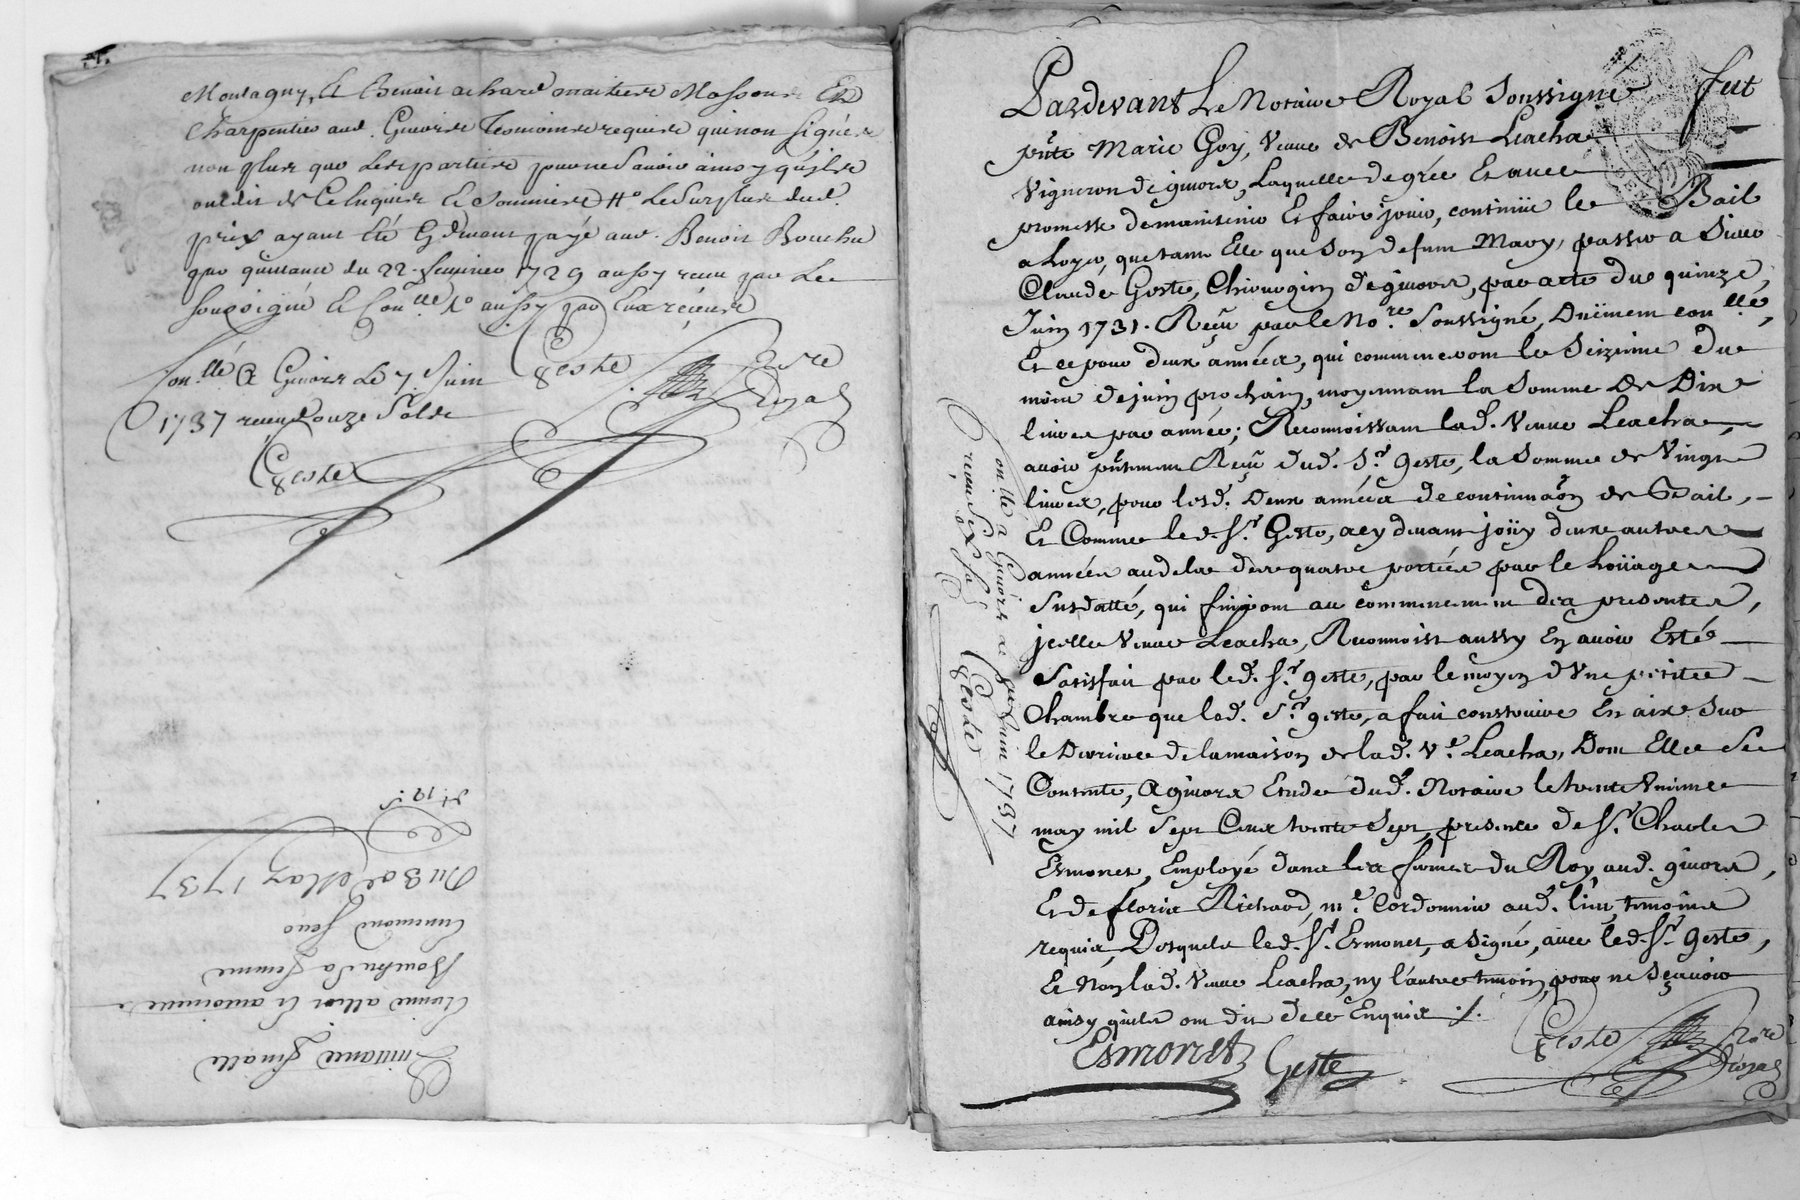 Montagny, Et Benoit achard maitre Masson Et
Charpentier aud. Givors Tesmoins requis qui non signés
non plus que Les parties pour ne Savoir ainsy qu'ils
ont dit de Ce Enquis Et Sommés Le Surplus dud.
prix ayant Eté Cy devant payé aud. Benoit Bouchu
par quittance du 22. Janvier 1729 aussy receu par Le
soussigné Et Con.llé aussy par Eux
Geste No.re Royal
Con.llé A Givors Le 7 Juin
1737 receu douze Sols
Geste
Quittance finalle
Etienne allier Et antoinette
Bouchu Sa femme
Ennemond
Du 30e May 1737
Pardevant Le Notaire Royal Soussigné fut
pnte Marie Goy, Veuve de Benoist Leacha
Vigneron de givors, Laquelle de grée Et avec
promesse de maintenir Et faire jouir, continüe le Bail
a Loyer, que tant Elle que Son defunt Mary, passer a Sieur
Claude Geste, Chirurgien de givors, par acte du quinze
Juin 1731. Reçu par le No.re Soussigné, Duement con.llé,
Et ce pour deux années, qui commenceront le Seizieme du
mois de juin prochain, moyennant la Somme De Dix
livres par année; Reconnoissant lad. Veuve Leacha,
avoir pntement Reçu dud. Sr. geste, la Somme de Vingt
livres, pour lesd. Deux années de continuaõn de Bail,
Et Comme led. Sr. Geste, a cy devant joüy deux autres
années audela des quatre portées par le Loüage
Susdatté, qui finiront au commencement des presentes,
jcelle Veuve Leacha, Reconnoist aussy En avoir Esté
Satisfait par led. Sr. geste, par le moyen d'Une petite
Chambre que led. Sr. geste, a fait construire En aix Sur
le Derriere de la maison de lad. Ve. Leacha, Dont Elle Se
Contente, A givors Etude dud. Notaire le trente Unieme
may mil Sept Cent trente Sept, presence de Sr. Charles
Esmonet, Employé dans les fermes du Roy aud. givors,
Et de floris Richard, me. Cordonnier aud. lieu, temoins
requis, Desquels led. Sr. Esmonet, a Signé, avec led. Sr. Geste,
Et Non lad. Veuve Leacha, ny l'autre temoin, pour ne Sçavoir
ainsy quils ont dit de ce Enquis ./.
Esmonet Geste Geste No.re Royal
Con.llé a Givors le 7 juin 1737
receu Six Sols
Geste